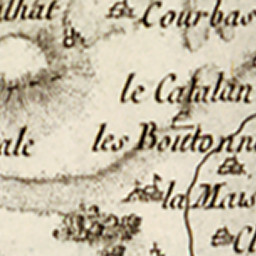 alhat
Courbas
le Catalan
ale
les Boutonn
la Mais
Cl